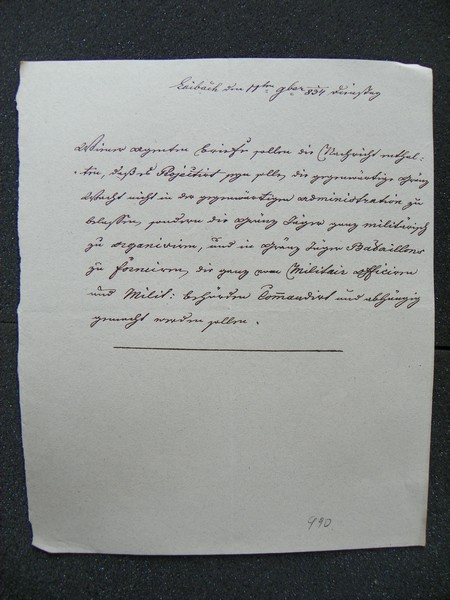 Laibach den 11ten 9ber 834 Dienstag
Wiener Agenten Briefe sollen die Nachricht enthal-
ten, daß es Projectirt seyn solle, die gegenwärtige Gränz
Wacht nicht in der gegenwärtigen Administration zu
belassen, sondern die Gränz Jäger ganz militärisch
zu organisiren, und in Gränz Jäger Bataillons
zu formiren, die ganz vom Militair Officiren
und Milit: behörden Comandirt und abhängig
gemacht werden sollen.
990